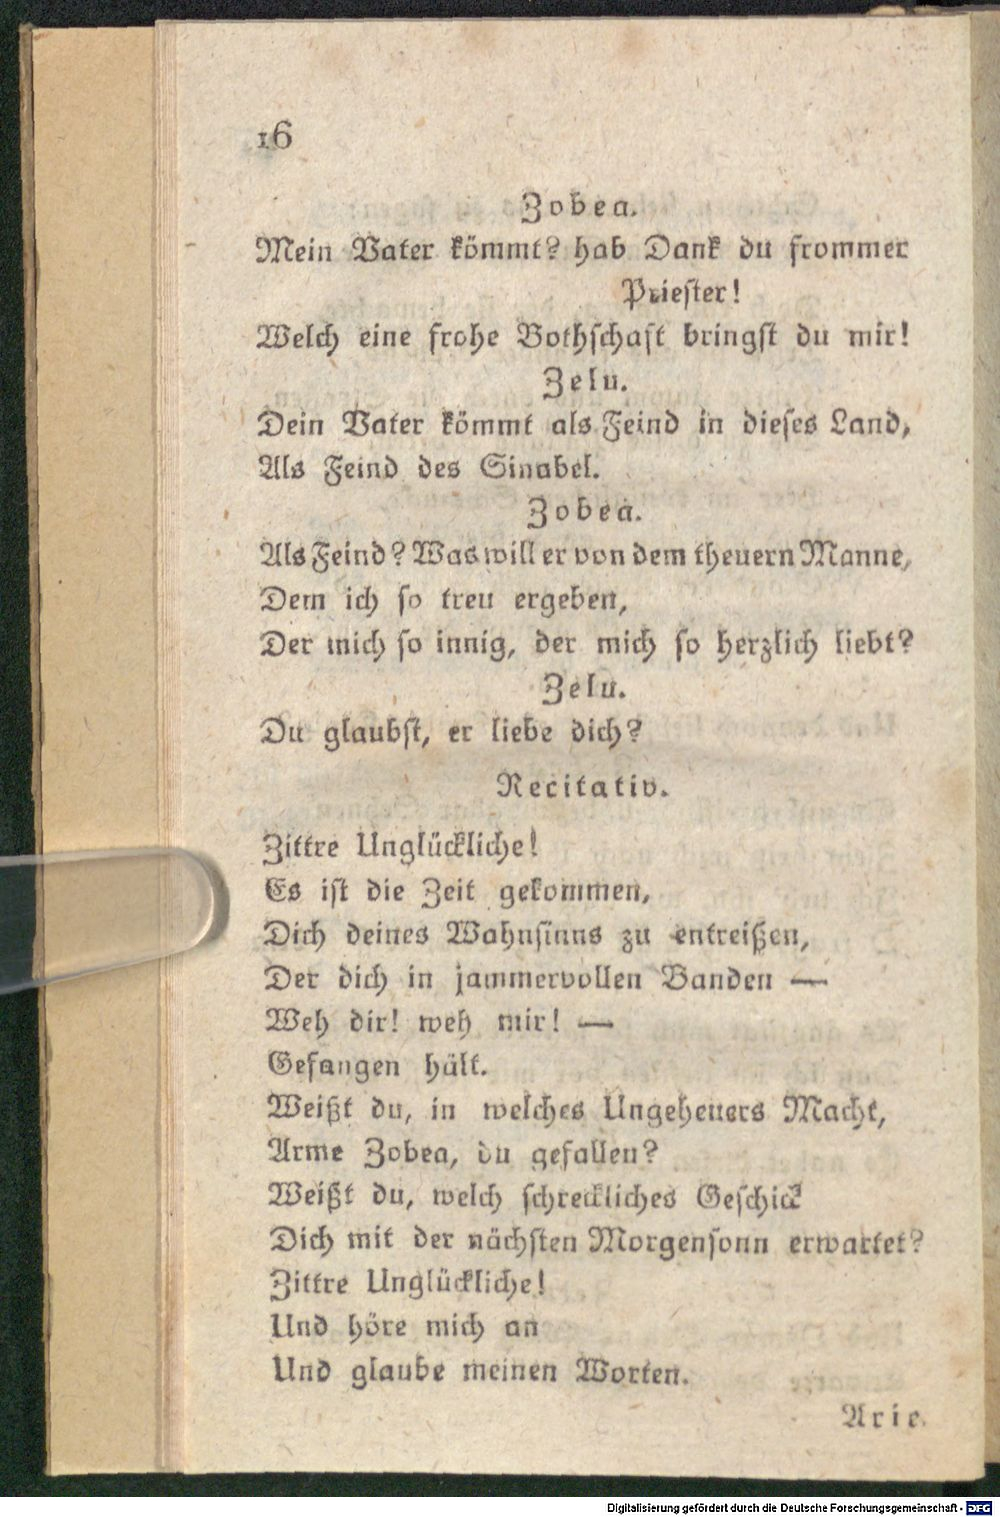 16
Zobea.
Mein Vater kömmt? hab Dank du frommer
Priester!
Welch eine frohe Bothschaft bringst du mir!
Zelu.
Dein Vater kömmt als Feind in dieses Land,
Als Feind des Sinabel.
Zobea.
Als Feind? Was will er von dem theuern Manne,
Dem ich so treu ergeben,
Der mich so innig, der mich so herzlich liebt?
Zelu.
Du glaubst, er liebe dich?
Recitativ.
Zittre Unglückliche!
Es ist die Zeit gekommen,
Dich deines Wahnsinns zu entreißen,
Der dich in jammervollen Banden —
Weh dir! weh mir! —
Gefangen hält.
Weißt du, in welches Ungeheuers Macht,
Arme Zobea, du gefallen?
Weißt du, welch schreckliches Geschick
Dich mit der nächsten Morgensonn erwartet?
Zittre Unglückliche!
Und höre mich an
Und glaube meinen Worten.
Arie.
Digitalisierung gefördert durch die Deutsche Forschungsgemeinschaft - DFG